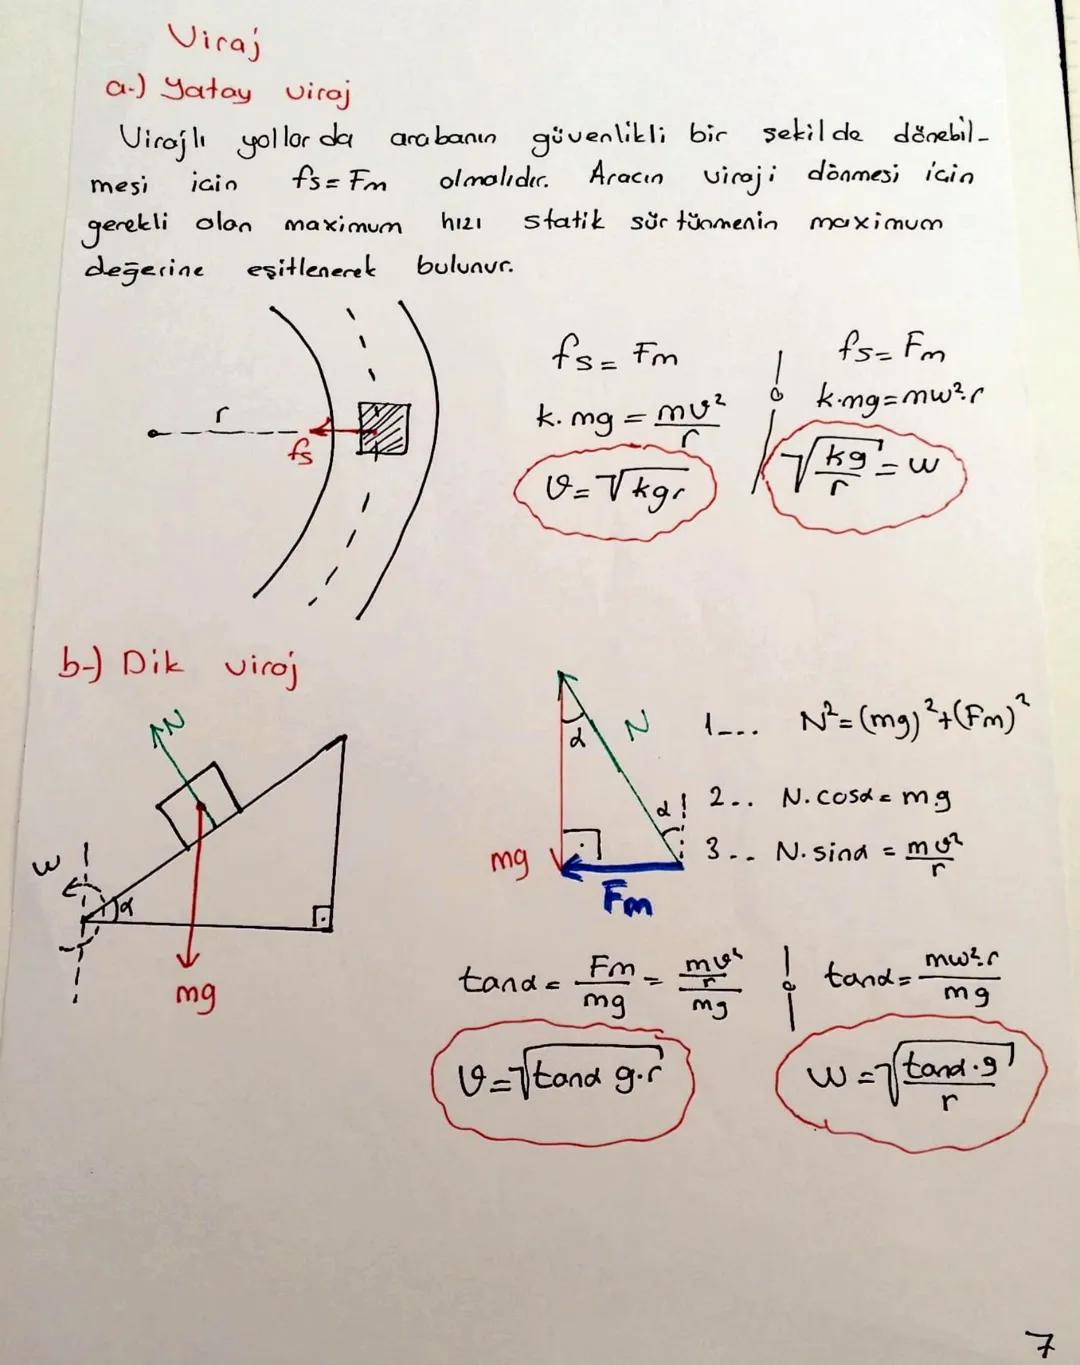 Viraj
a-) Yatay viraj
Virajlı yollarda arabanın güvenlikli bir şekilde dönebil-
mesi için fs = Fm olmalıdır. Aracın viraji dönmesi için
gerekli olan maximum hızı statik sürtünmenin maximum
değerine eşitlenerek bulunur.
r
fs
fs = Fm
k.mg = mv²/r
v = √kgr
fs = Fm
k.mg = mw².r
√(kg/r) = w
b-) Dik viraj
N
w
α
mg
α
N
α
mg
Fm
1--- N² = (mg)² + (Fm)²
2-- N.cosα = mg
3-- N.sinα = mv²/r
tanα = Fm/mg = (mv²/r)/mg
v = √tanα g.r
tanα = mw².r/mg
w = √(tanα.g/r)
7